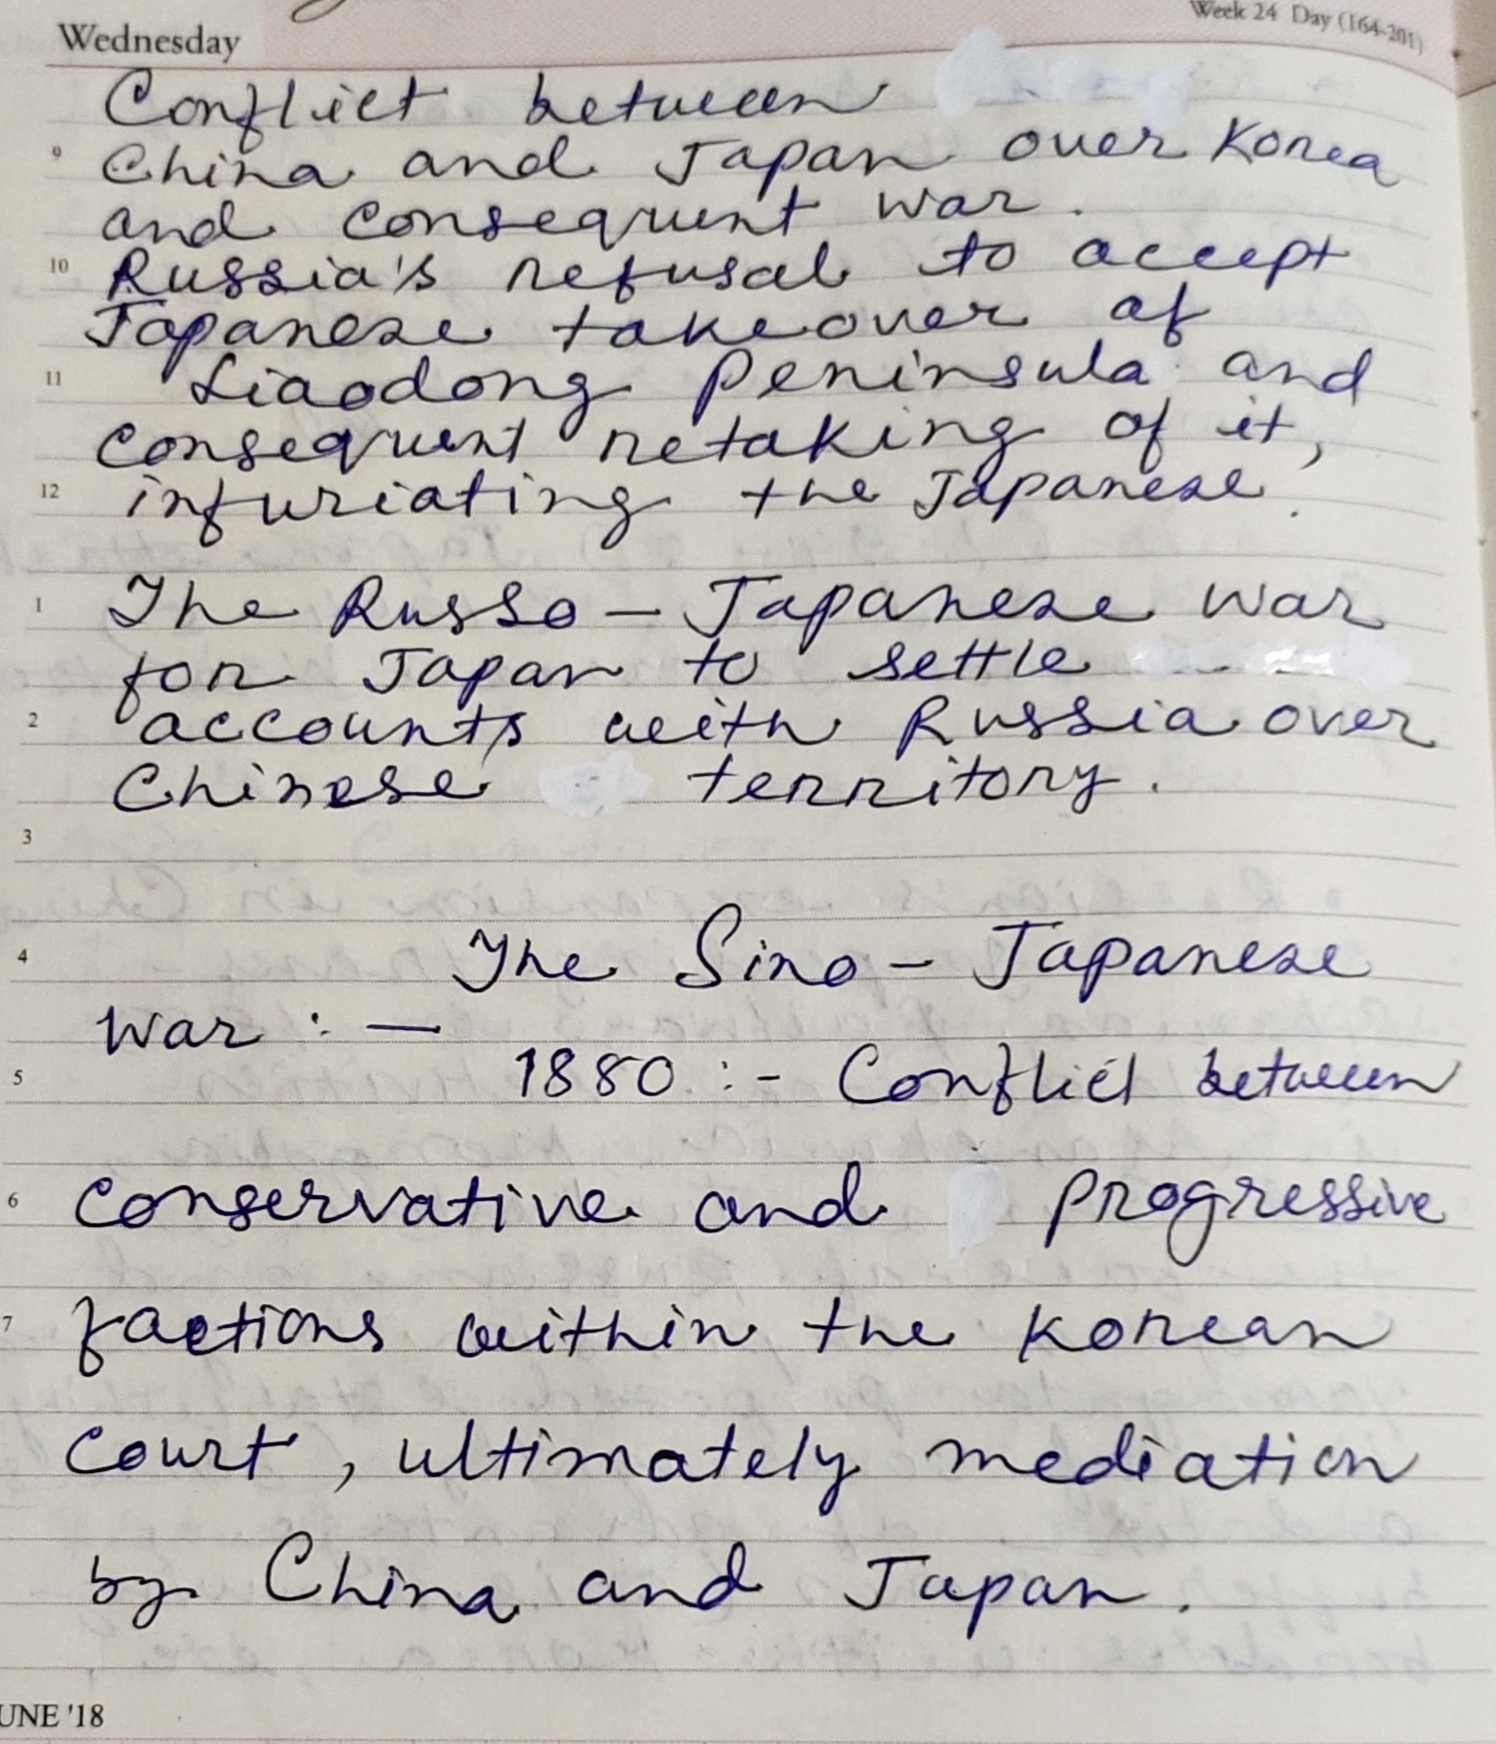 Wednesday
Week 24 Day (164-201)
Conflict between
9 China and Japan over Korea
and consequent war.
10 Russia's refusal to accept
Japanese takeover of
11 Liaodong Peninsula and
consequent retaking of it,
12 infuriating the Japanese.
1 The Russo - Japanese war
for Japan to settle
2 accounts with Russia over
Chinese territory.
3
4 The Sino - Japanese
war : —
5 1880 :- Conflict between
6 conservative and progressive
7 factions within the Korean
court, ultimately mediation
by China and Japan.
UNE '18